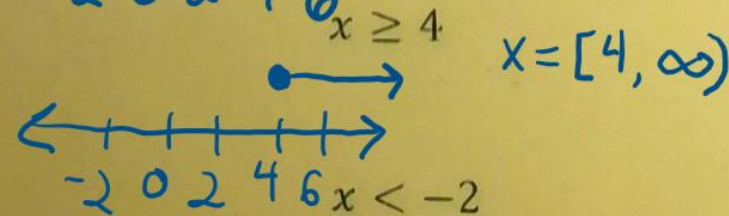 x ≥ 4
x = [4, ∞)
-2 0 2 4 6
x < -2